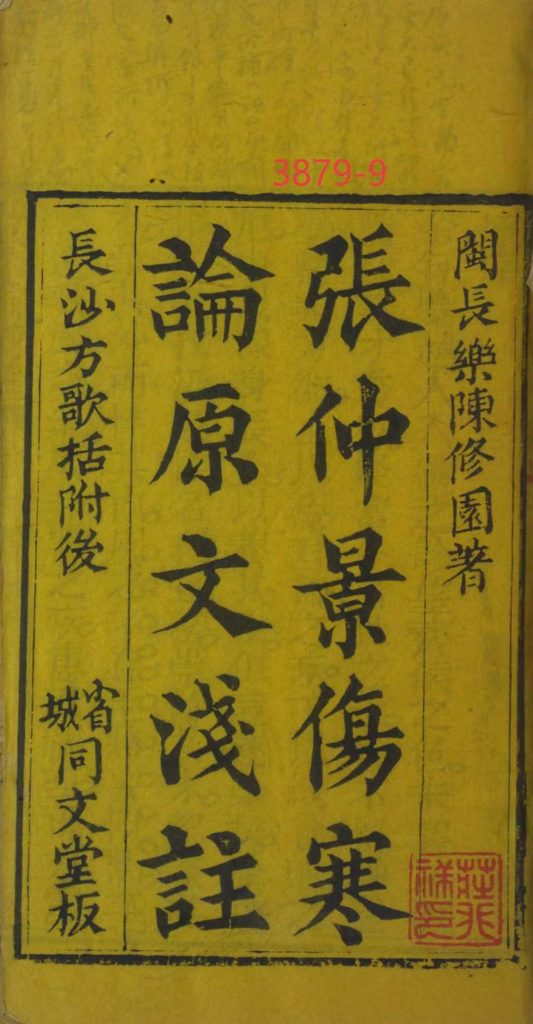 3879-9
閩長樂陳修園著
張仲景傷寒
論原文淺註
長沙方歌括附後
省城同文堂板